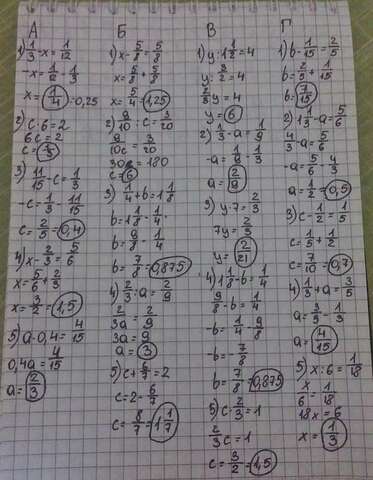 А
1) 1/3 - x = 1/12
-x = 1/12 - 1/3
x = 1/4 = 0,25
2) c · 6 = 2
6c = 2
c = 1/3
3) 11/15 - c = 1/3
-c = 1/3 - 11/15
c = 2/5 = 0,4
4) x - 2/3 = 5/6
x = 5/6 + 2/3
x = 3/2 = 1,5
5) a · 0,4 = 4/15
0,4a = 4/15
a = 2/3
Б
1) x - 5/8 = 5/8
x = 5/8 + 5/8
x = 5/4 = 1,25
2) 9/10 : c = 3/20
9/10c = 3/20
30c = 180
c = 6
3) 1/4 + b = 1 1/8
b = 1 1/8 - 1/4
b = 9/8 - 1/4
b = 7/8 = 0,875
4) 2/3 : a = 2/9
2/3a = 2/9
3a = 9
a = 3
5) c + 6/7 = 2
c = 2 - 6/7
c = 8/7 = 1 1/7
В
1) y : 1 1/2 = 4
y : 3/2 = 4
2/3 y = 4
y = 6
2) 1/3 - a = 1/9
-a = 1/9 - 1/3
a = 2/9
3) y · 7 = 2/3
7y = 2/3
y = 2/21
4) 1 1/8 - b = 1/4
9/8 - b = 1/4
-b = 1/4 - 9/8
-b = - 7/8
b = 7/8 = 0,875
5) c · 2/3 = 1
2/3 c = 1
c = 3/2 = 1,5
Г
1) b - 1/15 = 2/5
b = 2/5 + 1/15
b = 7/15
2) 1 1/3 - a = 5/6
4/3 - a = 5/6
-a = 5/6 - 4/3
a = 1/2 = 0,5
3) c - 1/2 = 1/5
c = 1/5 + 1/2
c = 7/10 = 0,7
4) 1/3 + a = 3/5
a = 3/5 - 1/3
a = 4/15
5) x : 6 = 1/18
x/6 = 1/18
18x = 6
x = 1/3